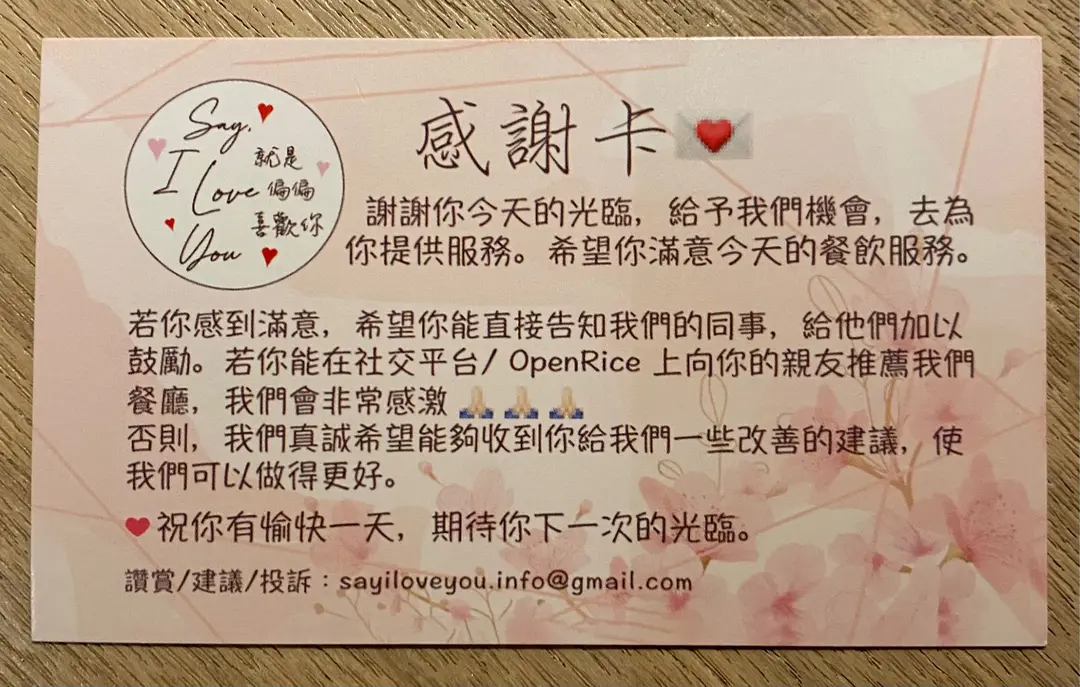 Say,
I Love
You
就是
偏偏
喜歡你
感謝卡
謝謝你今天的光臨，給予我們機會，去為
你提供服務。希望你滿意今天的餐飲服務。
若你感到滿意，希望你能直接告知我們的同事，給他們加以
鼓勵。若你能在社交平台/ OpenRice 上向你的親友推薦我們
餐廳，我們會非常感激 🙏🏻🙏🏻🙏🏻
否則，我們真誠希望能夠收到你給我們一些改善的建議，使
我們可以做得更好。
❤️祝你有愉快一天，期待你下一次的光臨。
讚賞/建議/投訴：sayiloveyou.info@gmail.com